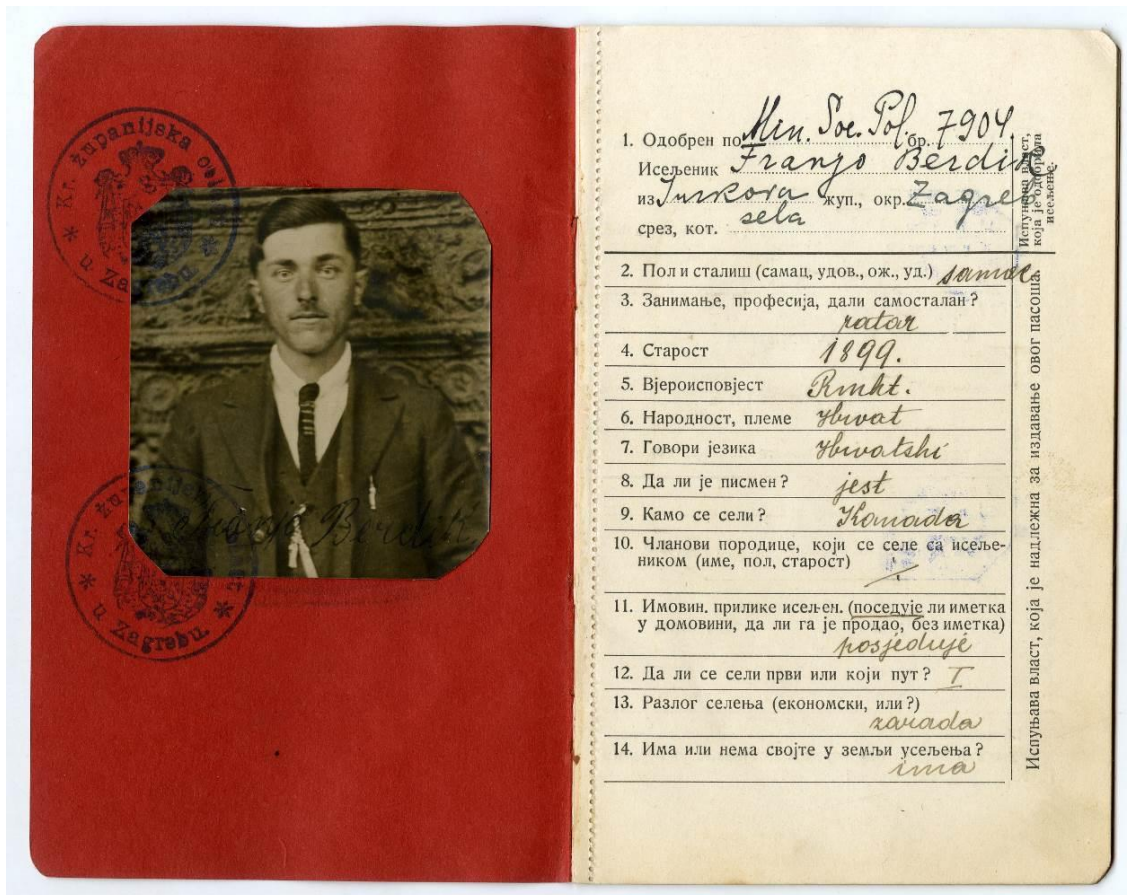 Kr. županijska
* u Zagrebu *
Franjo
Kr. županijska
* u Zagrebu. *
1. Одобрен по Min. Soc. Pol. бр. 7904.
Исељеник Franjo Berdik
из Jurkova жуп., окр. Zagreb
срез, кот. sela
2. Пол и сталиш (самац, удов., ож., уд.) samac
3. Занимање, професија, дали самосталан?
ratar
4. Старост 1899.
5. Вјероисповјест Rmkt.
6. Народност, племе Hrvat
7. Говори језика Hrvatski
8. Да ли је писмен? jest
9. Камо се сели? Kanada
10. Чланови породице, који се селе са исеље-
ником (име, пол, старост)
11. Имовин. прилике исељен. (поседује ли иметка
у домовини, да ли га је продао, без иметка)
posjeduje
12. Да ли се сели први или који пут? I
13. Разлог селења (економски, или?)
zarada
14. Има или нема својте у земљи усељења?
ima
Испуњава власт,
која је одобрила
исељење.
Испуњава власт, која је надлежна за издавање овог пасоша.